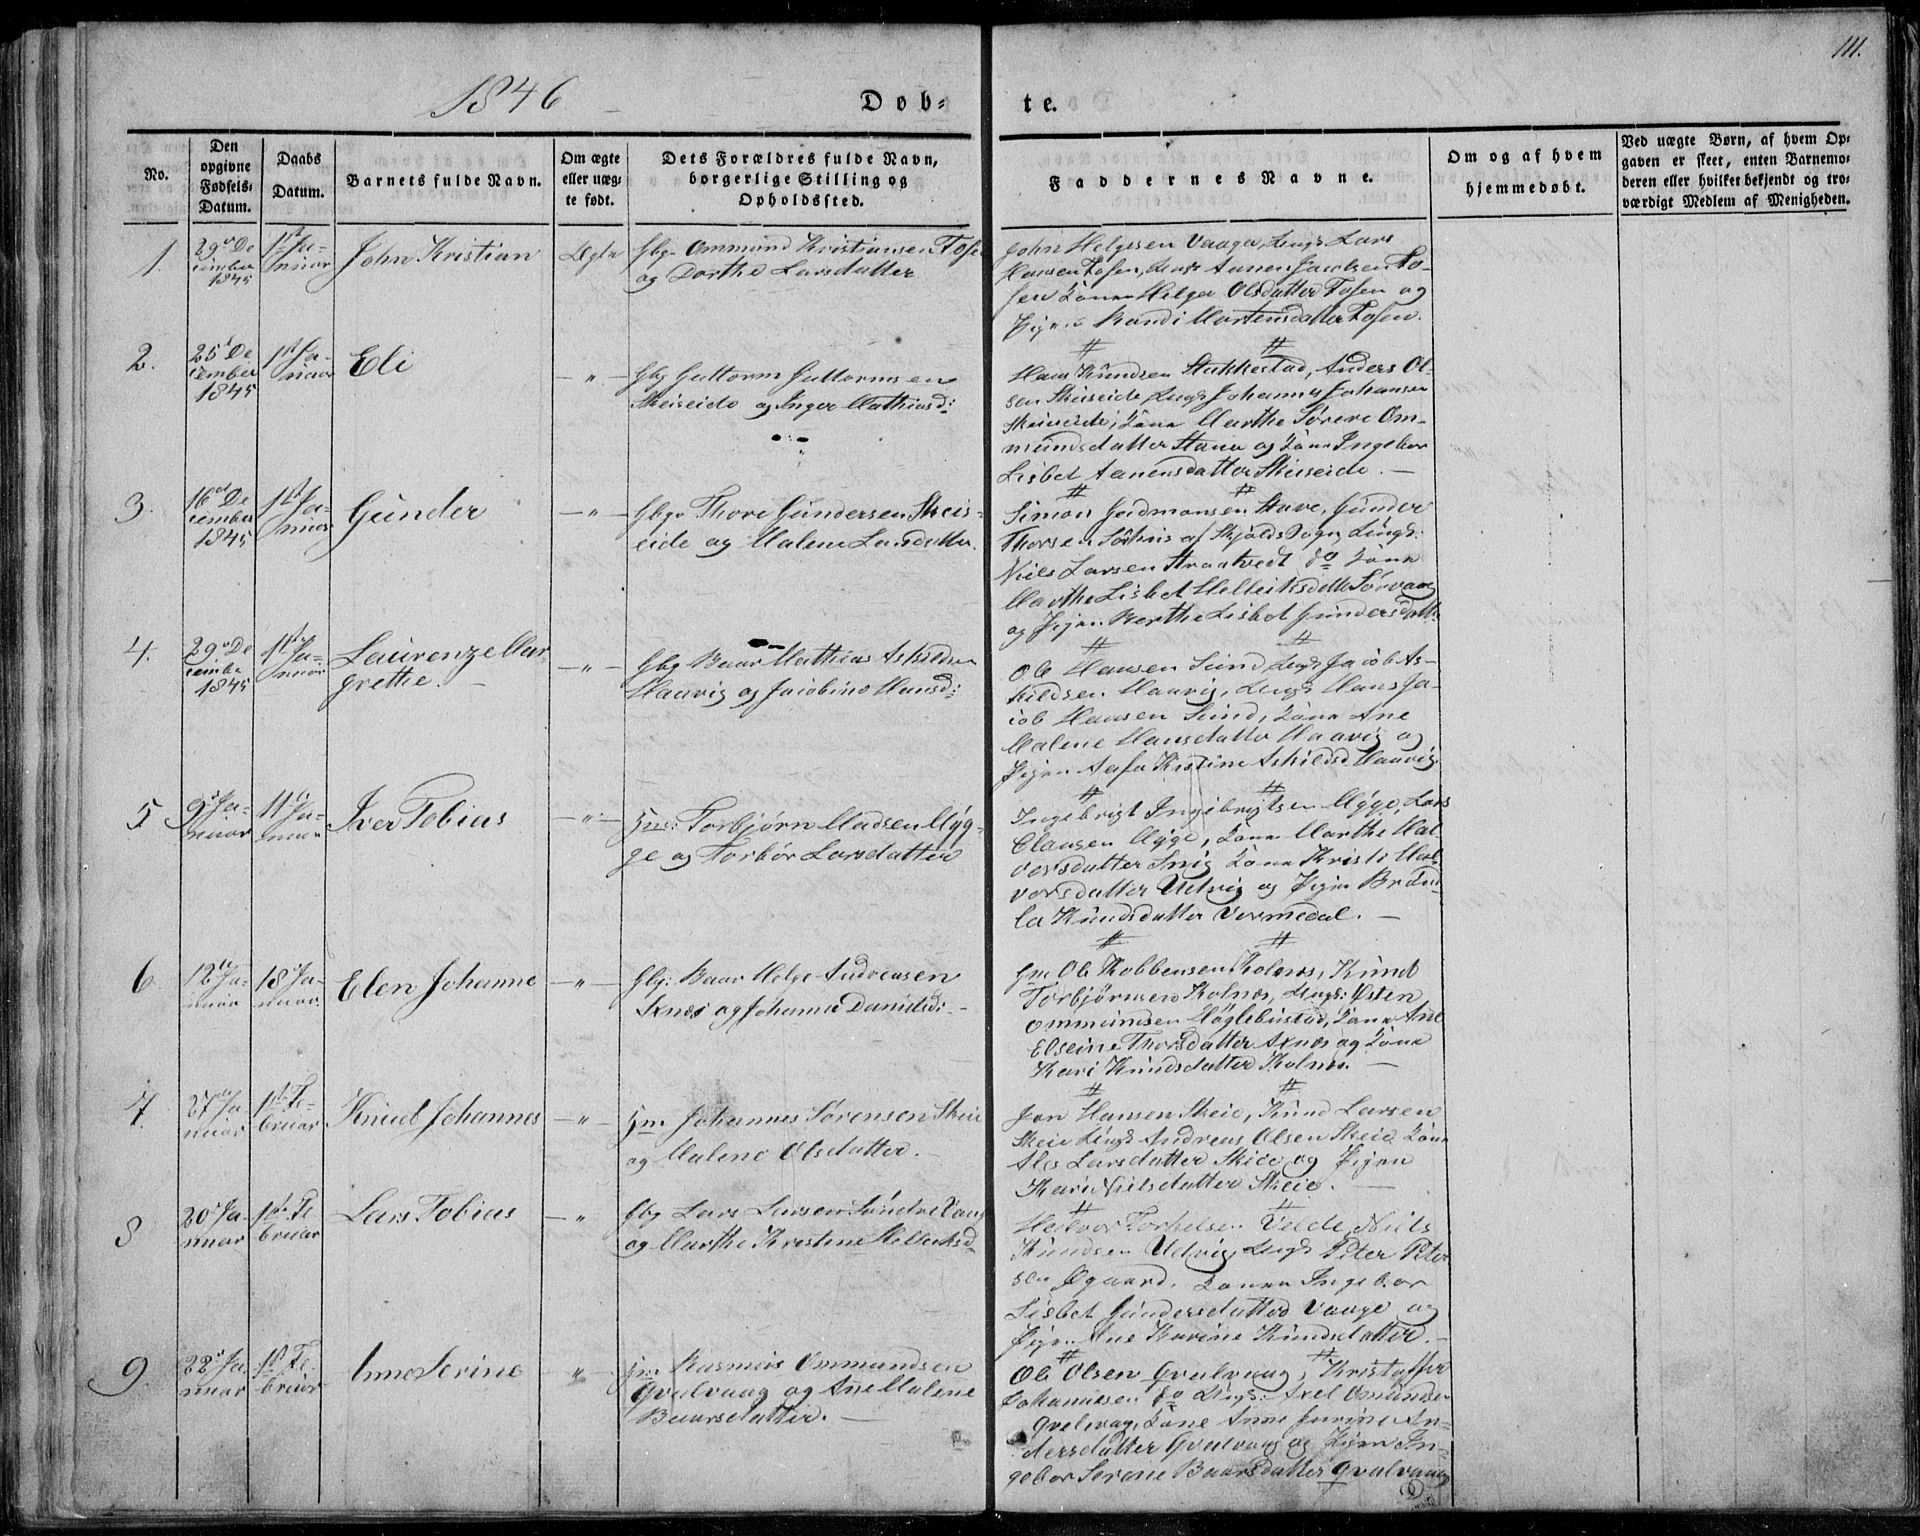 111.
1846
Døb-
te.
No.
Den opgivne Fødsels-Datum.
Daabs Datum.
Barnets fulde Navn.
Om ægte eller uægte født.
Dets Forældres fulde Navn, borgerlige Stilling og Opholdssted.
Faddernes Navne.
Om og af hvem hjemmedøbt.
Ved uægte Børn, af hvem Opgaven er skeet, enten Barnemoderen eller hvilket bekjendt og troværdigt Medlem af Menigheden.
1.
29de De-
cember
1845
1st Ja-
nuar
John Kristian
Ægte
Gbr Ommund Kristiansen Fosen
og Dorthe Larsdatter
John Helgesen Vaage, Ungk Lars
Hansen Fosen, Ungk Aanen Jacobsen Fo-
sen Kone Helga Olsdatter Fosen og
Pigen Randi Mortensdatter Fosen.
2.
25d De
cember
1845
1st Ja-
nuar
Eli
— " —
Gbr Guttorm Guttormsen
Skeiseide og Inger Mathiasd:
Hans Knudsen Stukkestad, Anders Ol-
sen Skeiseide, Ungk Johannes Johansen
Skeiseide, Kone Marthe Sørene Om-
mundsdatter Stava og Kone Ingebor
Lisbet Aanensdatter Skeiseide. —
3.
16d De
cember
1845
1st Ja-
nuar
Gunder
— " —
Gbr Thore Gundersen Skeis-
eide og Malene Larsdatter.
Simon Gudmonsen Stave, Gunder
Thorsen af Skjolds Sogn, Ungk:
Niels Larsen Straatvedt do Kone
Marthe Lisbet Helleiksdttr Sørvaag
og Pigen Berthe Lisbet Gundersdattr
4.
29de De
cember
1845
1st Ja-
nuar
Laurenze Mar-
grethe. —
— " —
Gbr Baar Mathias Askildsen
Haavig og Jacobine Hansd:
Ole Hansen Sund, Ungk Jacob As-
kildsen Haavig, Ungk Hans Ja-
cob Hansen Sund, Kone Ane
Malene Hansdatter Haavig og
Pigen Aasa Kristine Askildsd. Haavig.
5
9de Ja-
nuar
11te Ja-
nuar
Iver Tobias
— " —
Hm: Torbjørn Madsen Myg-
ge og Torbør Larsdatter
Ingebrigt Ingebrigtsen Mygge, Lars
Clausen Mygge, Kone Marthe Hal
vorsdatter Snig Kone Kristi Hal-
vorsdatter Utvig og Pigen Brun-
la Knudsdatter Vormedal. —
6
12te Ja-
nuar
18de Ja-
nuar
Elen Johanne
— " —
Gbr: Baar Helge Andreasen
Axnæs og Johanne Danielsd: —
Gm Ole Kolnæs, Knud
Torbjørnsen Kolnæs, Ungk: Østen
Ommundsen Høglebustad, Kone Ane
Elseine Thorsdatter Axnæs og Kone
Kari Knudsdatter Kolnæs. —
7.
27de Ja-
nuar
1ste Fe-
bruar
Knud Johannes
— " —
Hm Johannes Sørensen Skeie
og Malene Olsdatter. —
Jon Hansen Skeie, Knud Larsen
Skeie Ungk Andreas Olsen Skeie Kone
Ales Larsdatter Skeie og Pigen
Kari Nielsdatter Skeie. —
8
20de Ja-
nuar
1ste Fe-
bruar
Lars Tobias
— "
Gbr Lars Larsen Søndre Vaag
og Marthe Kristine Helleiksd —
Halvor Torkelsen Velde, Niels
Knudsen Utvig, Ungk Peter Peter
sen Øgaard, Kone Ingebor
Lisbet Gundersdatter Vaage og
Pigen Ane Karine Knudsdatter. —
9.
22de Ja-
nuar
1ste Fe-
bruar
Anne Serine
"
Hm Rasmus Ommundsen
Qvalvaag og Ane Malene
Baarsdatter. —
Ole Olsen Qvalvaag, Kristoffer
Johannesen do Ungk: Axel Omundsen
Qvalvag, Kone Anne Jurine An-
dersdatter Qvalvaag og Pigen In-
gebor Serene Baarsdatter Qvalvaag